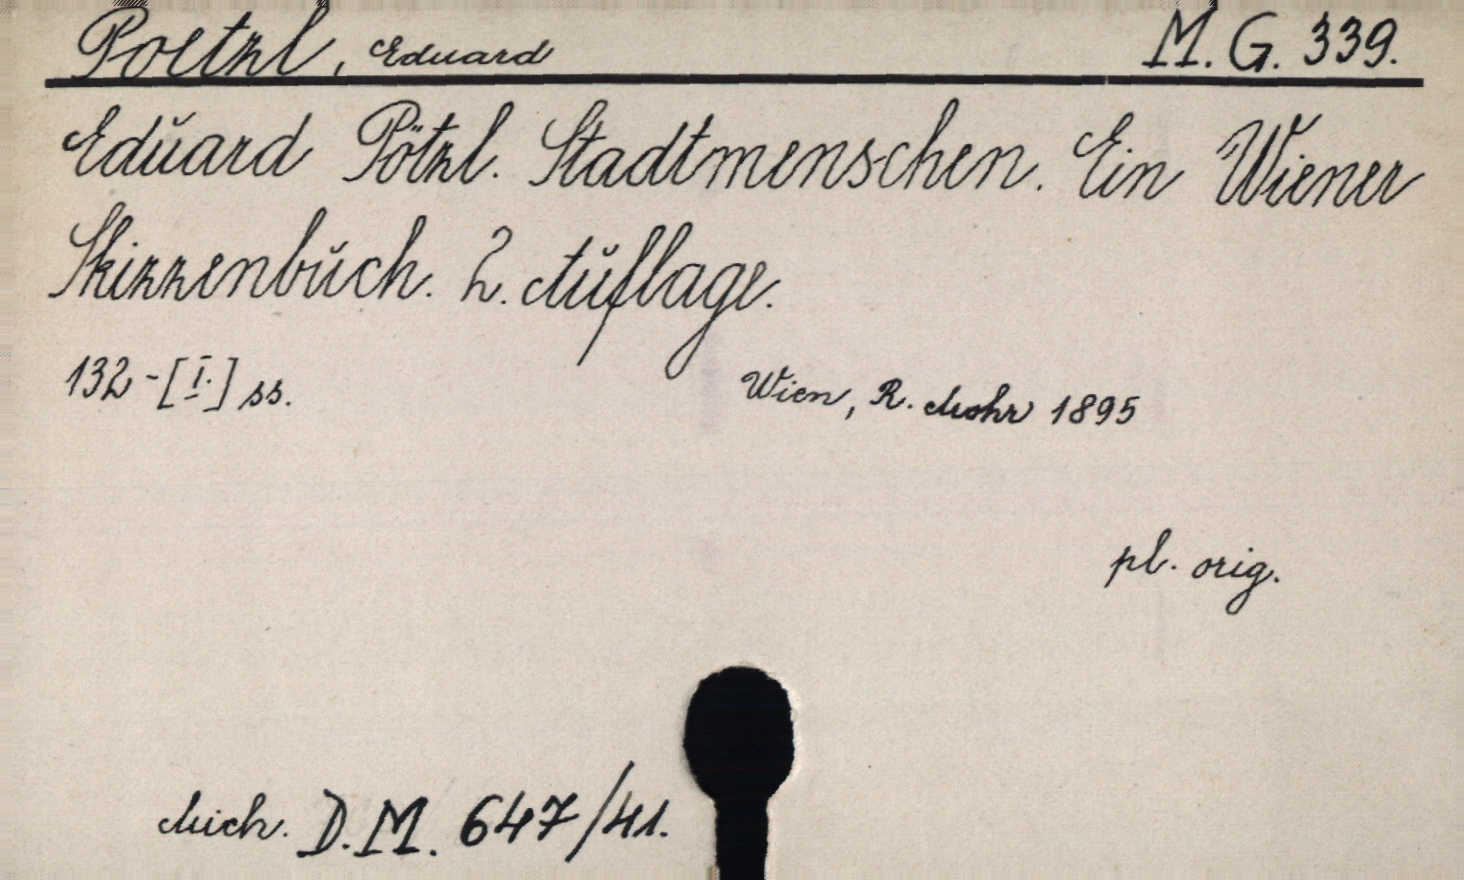 Poetzl, Eduard M. G. 339.
Edŭard Pötzl. Stadtmenschen. Ein Wiener
Skizzenbŭch. 2. Aŭflage.
132-[I.] ss. Wien, R. Mohr 1895
pl. orig.
Mich. D.M. 647/41.